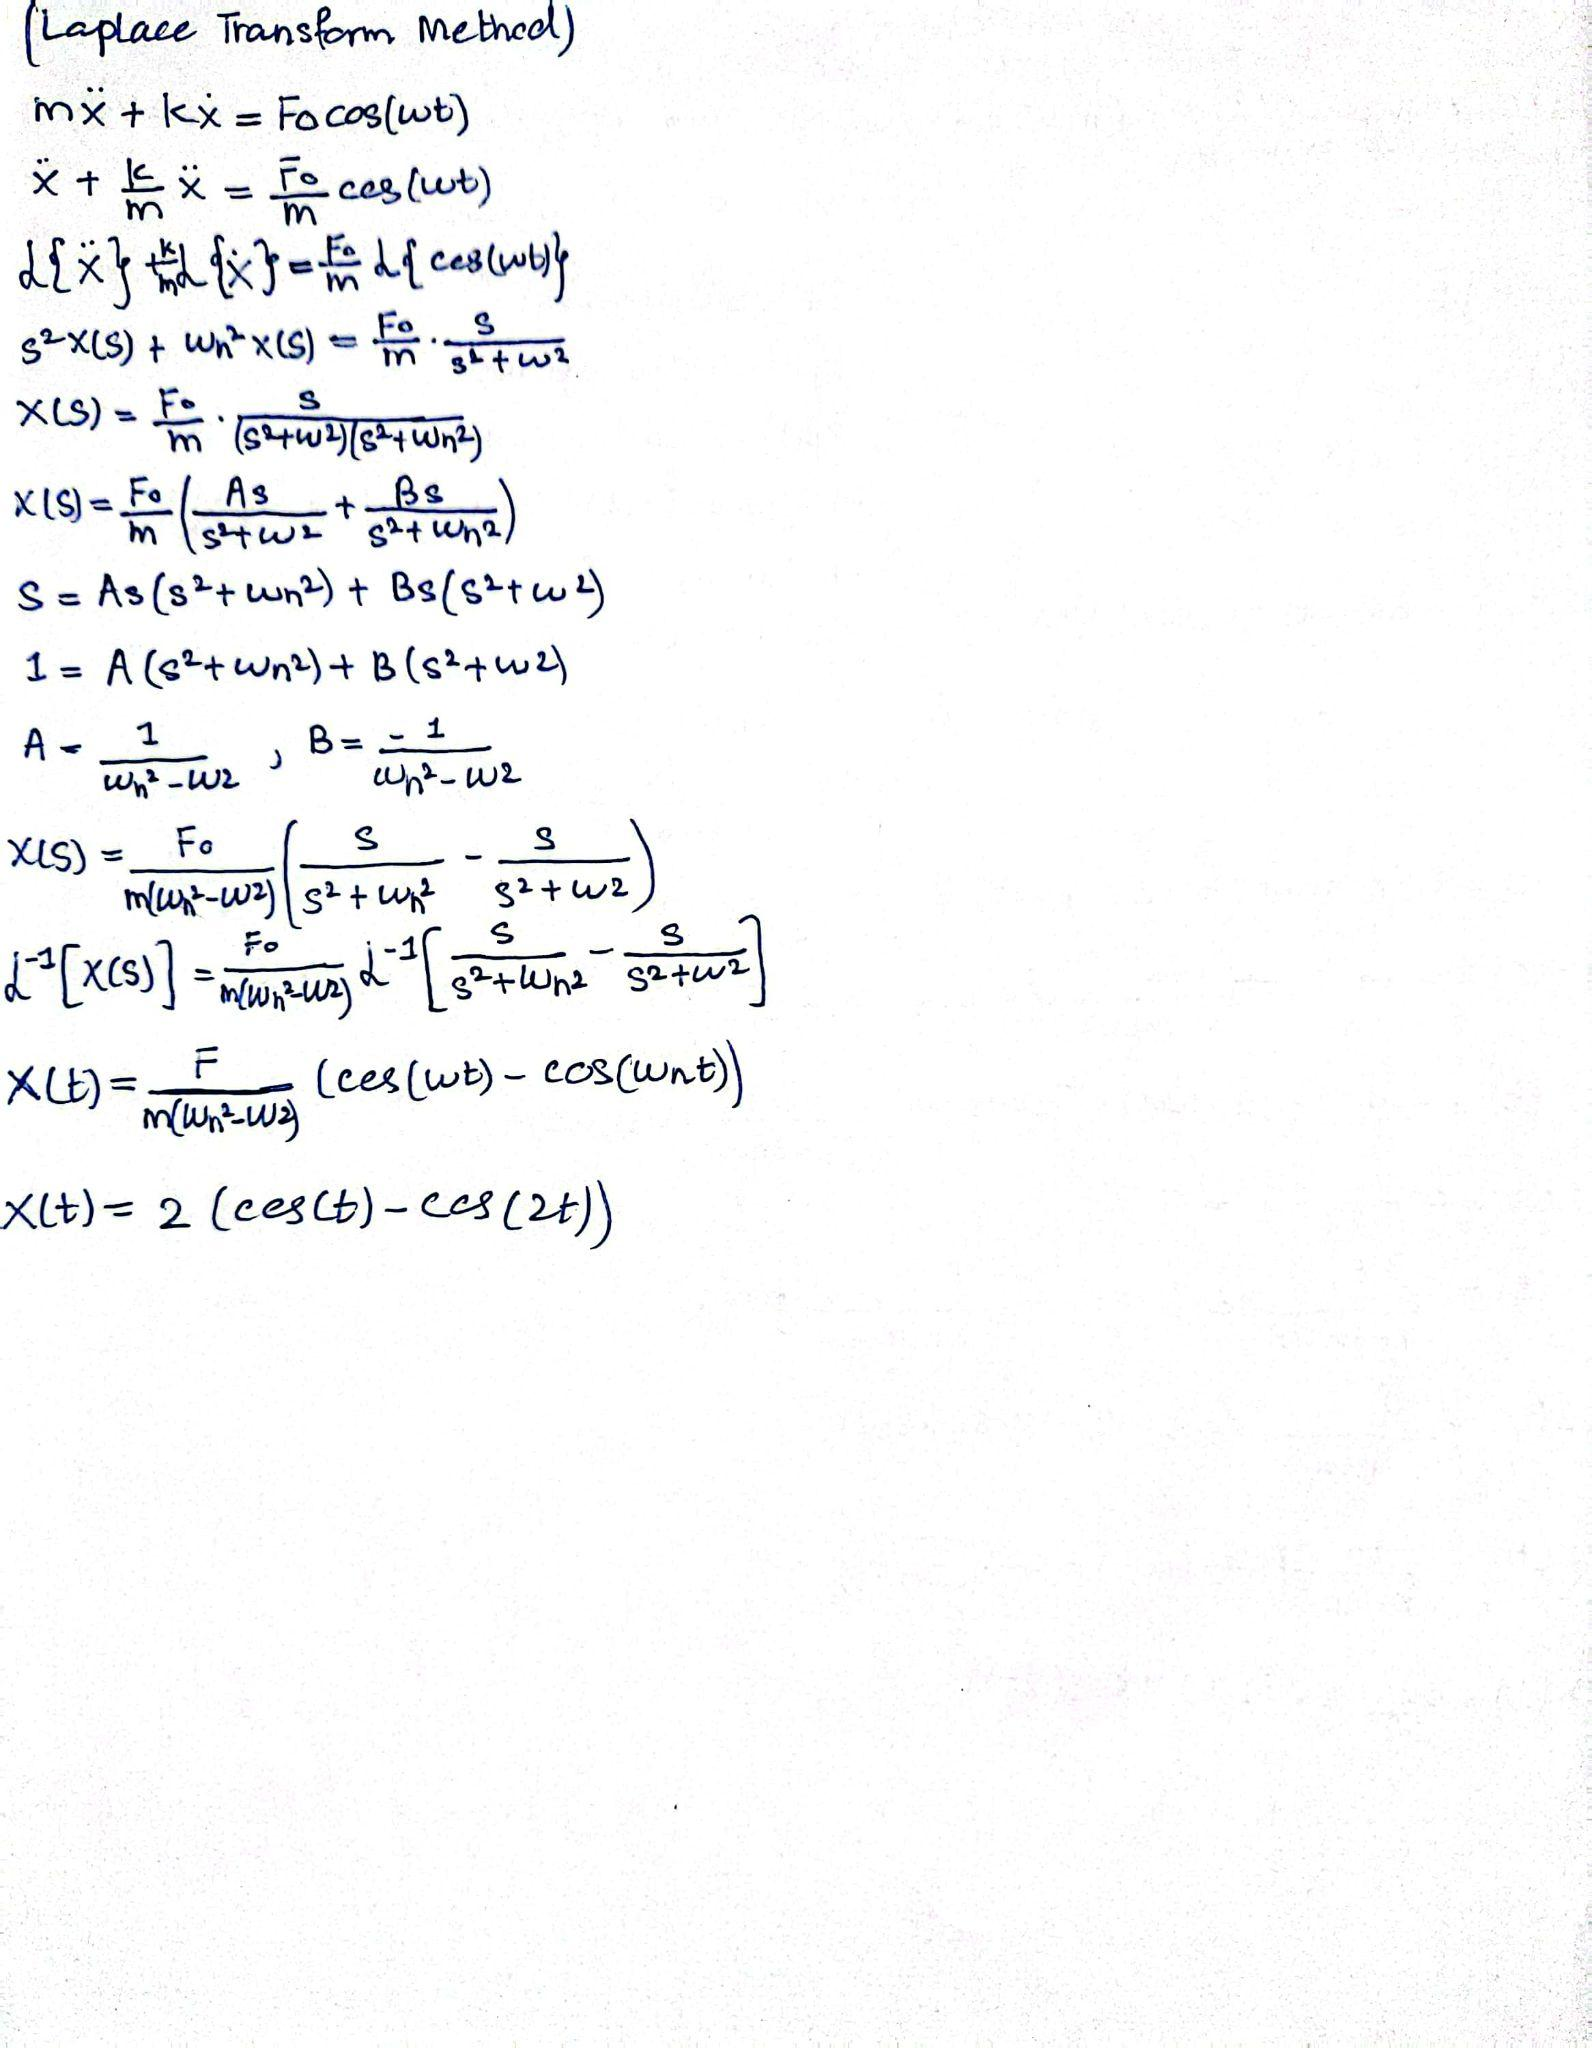 (Laplace Transform Method)
mẍ + kẋ = F₀cos(ωt)
ẍ + k/m ẍ = F₀/m cos(ωt)
ℒ{ẍ} + k/m ℒ{ẋ} = F₀/m ℒ{cos(ωt)}
s²X(s) + ωn²X(s) = F₀/m · s/(s²+ω²)
X(s) = F₀/m · s/((s²+ω²)(s²+ωn²))
X(s) = F₀/m (As/(s²+ω²) + Bs/(s²+ωn²))
s = As(s²+ωn²) + Bs(s²+ω²)
1 = A(s²+ωn²) + B(s²+ω²)
A = 1/(ωn²-ω²) , B = -1/(ωn²-ω²)
X(s) = F₀/(m(ωn²-ω²)) (s/(s²+ωn²) - s/(s²+ω²))
ℒ⁻¹[X(s)] = F₀/(m(ωn²-ω²)) ℒ⁻¹[s/(s²+ωn²) - s/(s²+ω²)]
X(t) = F/(m(ωn²-ω²)) (cos(ωt) - cos(ωnt))
X(t) = 2 (cos(t) - cos(2t))